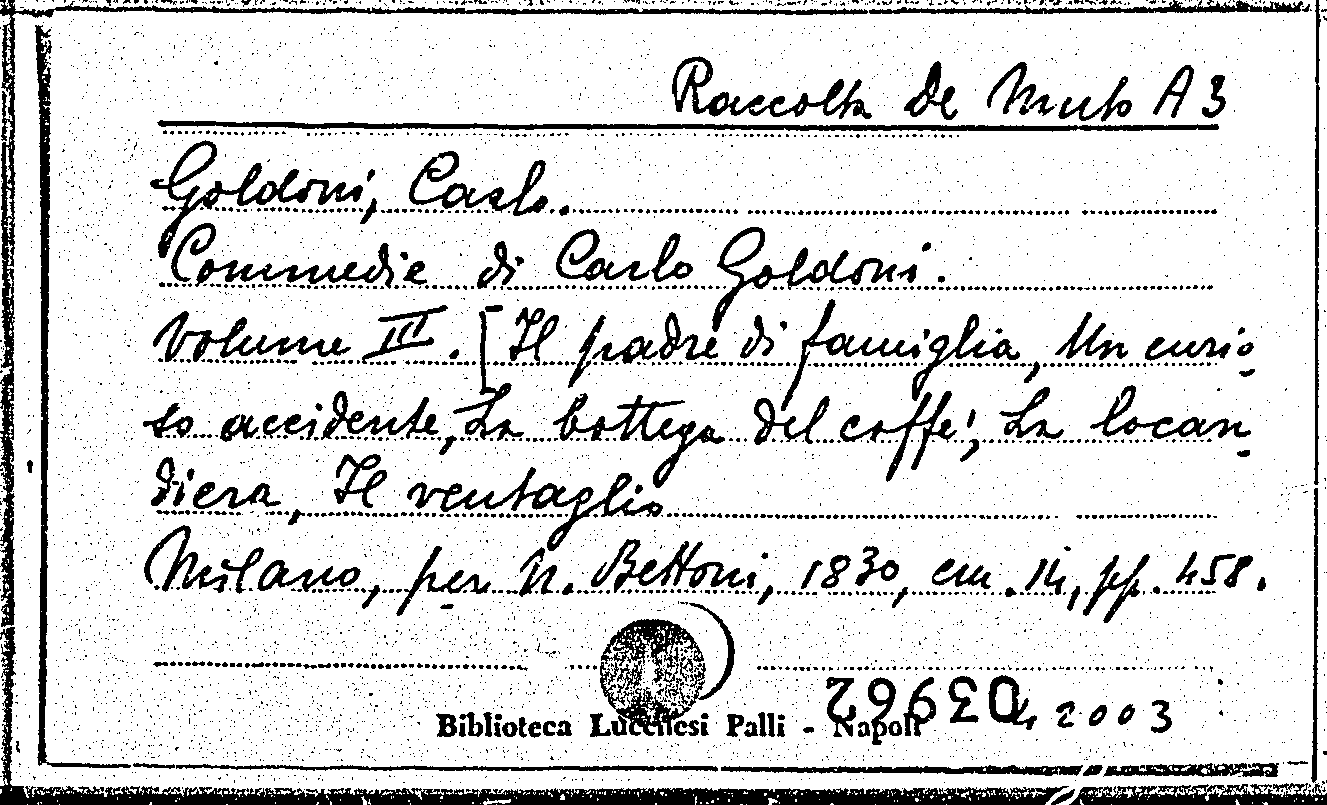 Raccolta De Muto A 3
Goldoni, Carlo.
Commedie di Carlo Goldoni.
Volume III. [Il padre di famiglia, Un curio-
so accidente, La bottega del caffe', La locan-
diera, Il ventaglio
Milano, per N. Bettoni, 1830, cm. 14, pp. 458.
Biblioteca Lucchesi Palli - Napoli
2003